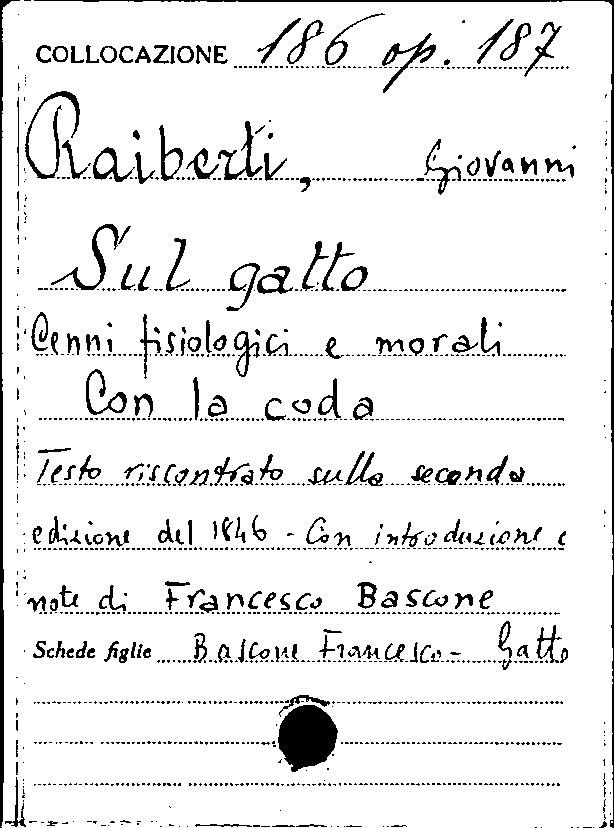 COLLOCAZIONE 186 op. 187
Raiberti, Giovanni
Sul gatto
Cenni fisiologici e morali
Con la coda
Testo riscontrato sulla seconda
edizione del 1846 - Con introduzione e
note di Francesco Bascone
Schede figlie Bascone Francesco - Gatto